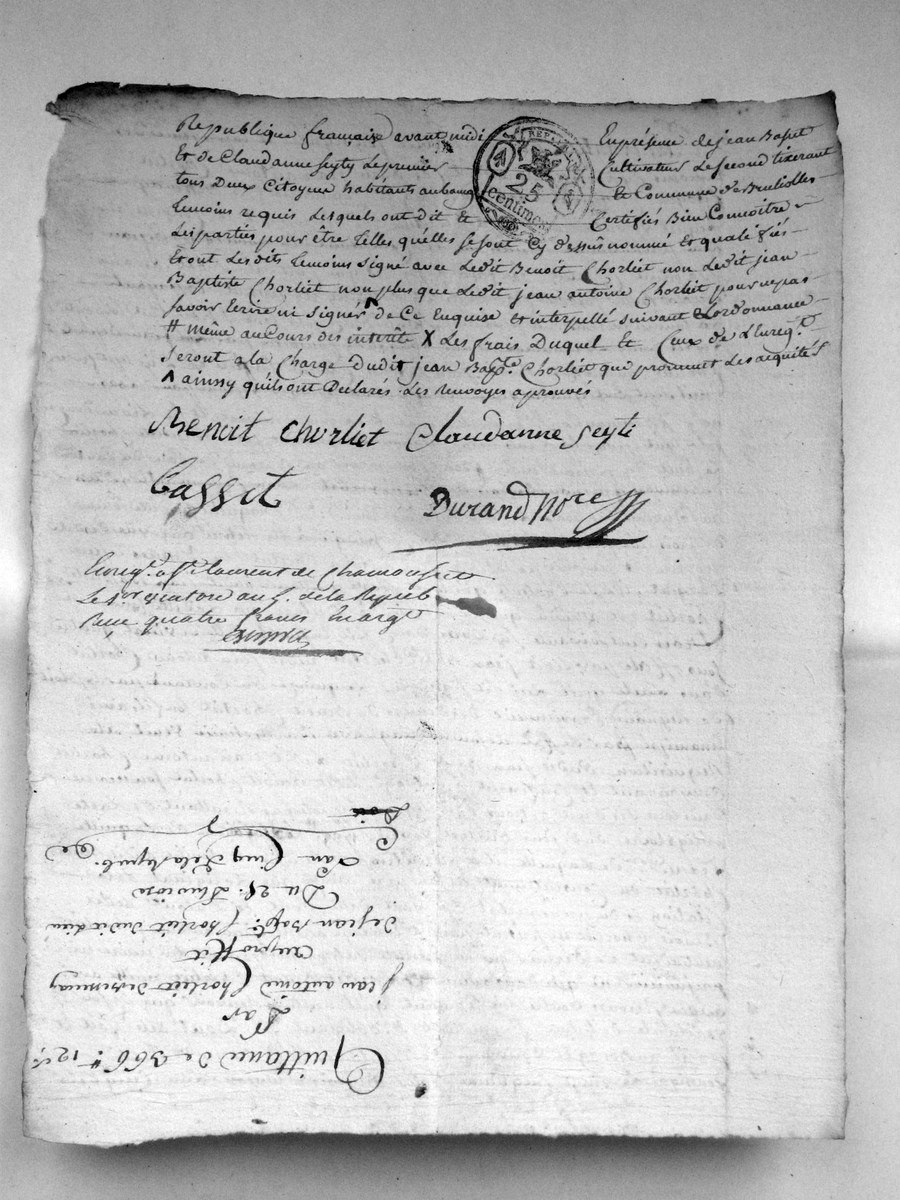 Republique française avant midi En présence de jean Basset
Et de Claudanne Seyty Le premier Cultivateur Le second tixerant
tous Deux Citoyens habitants au bourg et Commune de Beutiolles
temoins requis Lesquels ont dit et Certifiés Bien Connoître
Les parties pour être telles qu'elles se sont Cy dessus nommé et qualifiés
et ont Les dits temoins signé avec Ledit Benoit Chorliet non Ledit jean
Baptiste Chorliet non plus que Ledit jean antoine Chorliet pour ne pas
savoir Ecrire ni signér ^ de Ce Enquise et interpellé suivant Lordonnance
# même au Cours des interêt X Les frais Duquel et Ceux de L'Enreg.t
seront a la Charge Dudit jean Bap.te Chorliet que promet Les acquités
^ ainssy quils ont Declarés Les Renvoyes aprouvés
REPUBLIQUE
25
Centimes
Benoit Chorliet Claudanne Seyti
Basset
Durand Nore
Enreg.t a St Laurent de Chamousset
Le 1er ventose an 5 de la Repueb
Reçu quatre francs
Quittance de 366.# 12 s.
Par
jean antoine Chorliet
Au proffit
De jean Bapt. Chorliet dudit lieu
Du 25. Pluviose
Lan Cinq De la Repub.